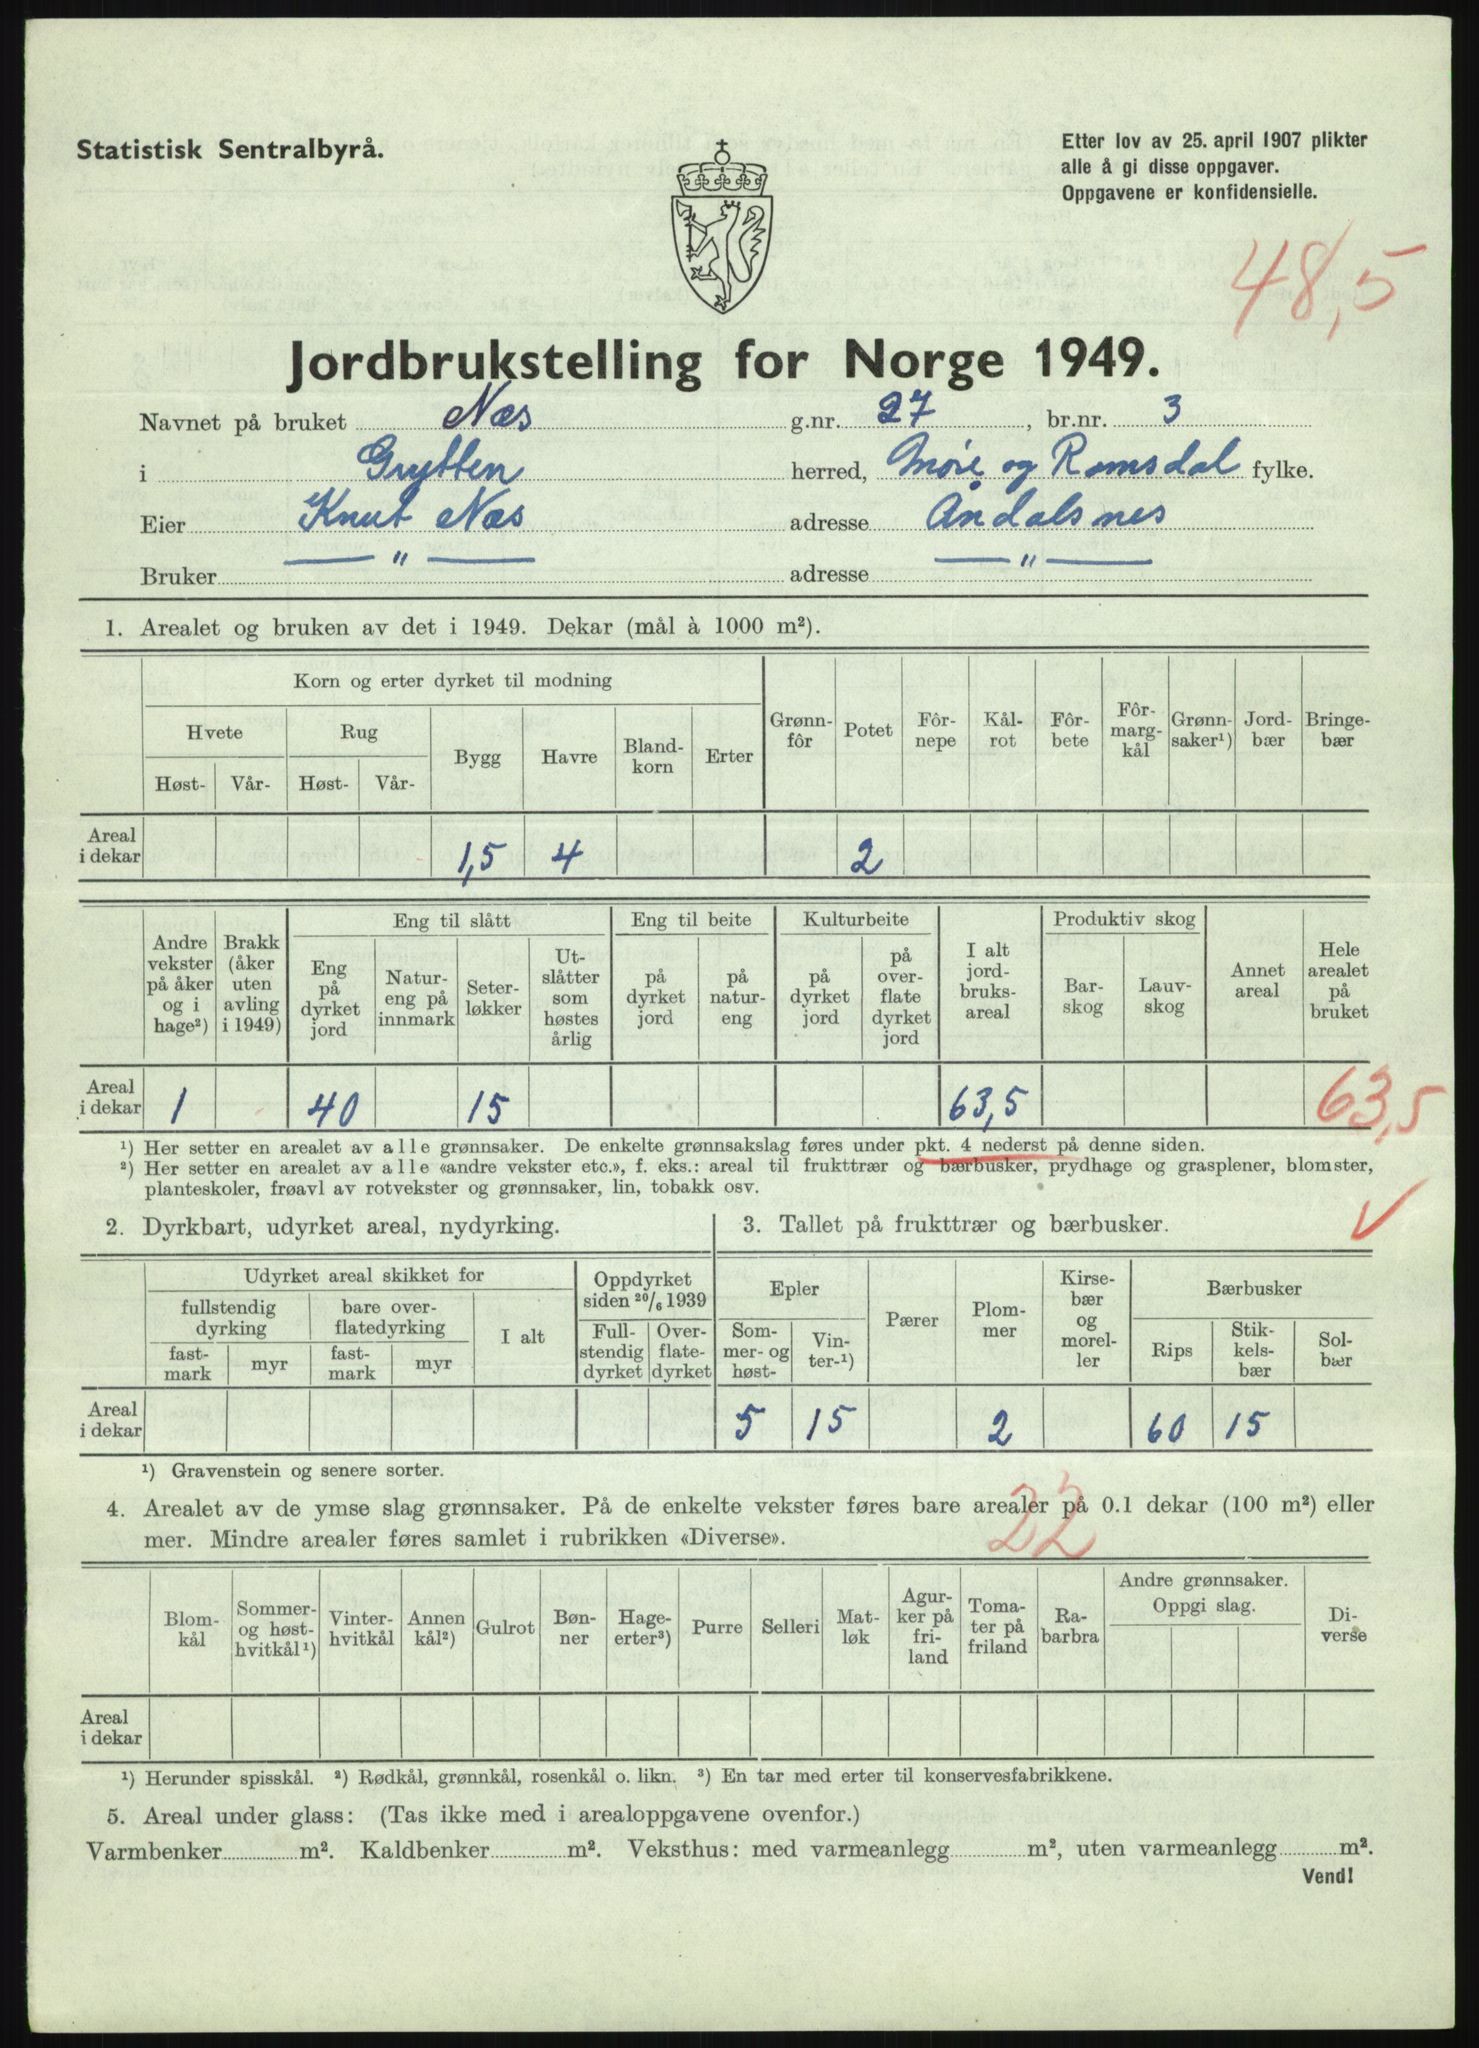 Statistisk Sentralbyrå.
Etter lov av 25. april 1907 plikter
alle å gi disse oppgaver.
Oppgavene er konfidensielle.
48,5
Jordbrukstelling for Norge 1949.
Navnet på bruket Næs g.nr. 27, br.nr. 3
i Grytten herred, Møre og Romsdal fylke.
Eier Knut Næs adresse Åndalsnes
Bruker — " — adresse — " —
1. Arealet og bruken av det i 1949. Dekar (mål à 1000 m²).
Korn og erter dyrket til modning
Hvete Rug Bygg Havre Bland-korn Erter Grønn-fôr Potet Fôr-nepe Kål-rot Fôr-bete Fôr-marg-kål Grønn-saker¹) Jord-bær Bringe-bær
Høst- Vår- Høst- Vår-
Areal i dekar 1,5 4 2
Eng til slått Eng til beite Kulturbeite Produktiv skog
Andre vekster på åker og i hage²) Brakk (åker uten avling i 1949) Eng på dyrket jord Natur-eng på innmark Seter-løkker Ut-slåtter som høstes årlig på dyrket jord på natur-eng på dyrket jord på over-flate dyrket jord I alt jord-bruks-areal Bar-skog Lauv-skog Annet areal Hele arealet på bruket
Areal i dekar 1 40 15 63,5 63,5
¹) Her setter en arealet av alle grønnsaker. De enkelte grønnsakslag føres under pkt. 4 nederst på denne siden.
²) Her setter en arealet av alle «andre vekster etc.», f. eks.: areal til frukttrær og bærbusker, prydhage og grasplener, blomster,
planteskoler, frøavl av rotvekster og grønnsaker, lin, tobakk osv.
2. Dyrkbart, udyrket areal, nydyrking.
3. Tallet på frukttrær og bærbusker.
Udyrket areal skikket for Oppdyrket siden 20/6 1939 Epler Pærer Plom-mer Kirse-bær og morel-ler Bærbusker
fullstendig dyrking bare over-flatedyrking I alt Full-stendig dyrket Over-flate-dyrket Som-mer- og høst- Vin-ter-¹) Rips Stik-kels-bær Sol-bær
fast-mark myr fast-mark myr
Areal i dekar 5 15 2 60 15
¹) Gravenstein og senere sorter.
22
4. Arealet av de ymse slag grønnsaker. På de enkelte vekster føres bare arealer på 0.1 dekar (100 m²) eller
mer. Mindre arealer føres samlet i rubrikken «Diverse».
Blom-kål Sommer- og høst-hvitkål¹) Vinter-hvitkål Annen kål²) Gulrot Bøn-ner Hage-erter³) Purre Selleri Mat-løk Agur-ker på fri-land Toma-ter på friland Ra-barbra Andre grønnsaker. Oppgi slag. Di-verse
Areal i dekar
¹) Herunder spisskål. ²) Rødkål, grønnkål, rosenkål o. likn. ³) En tar med erter til konservesfabrikkene.
5. Areal under glass: (Tas ikke med i arealoppgavene ovenfor.)
Varmbenker m². Kaldbenker m². Veksthus: med varmeanlegg m², uten varmeanlegg m².
Vend!